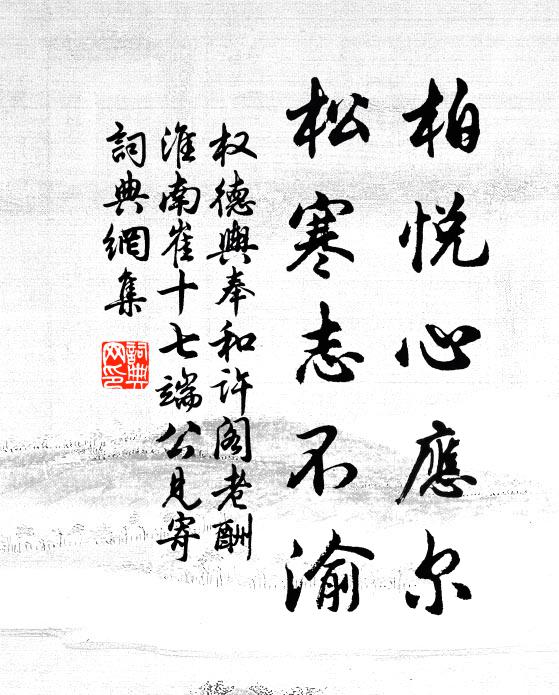 柏悦心應尔
松寒志不渝
权德輿奉和许阁老酬
淮南崔十七端公見寄
詞典網集
詞典
网印